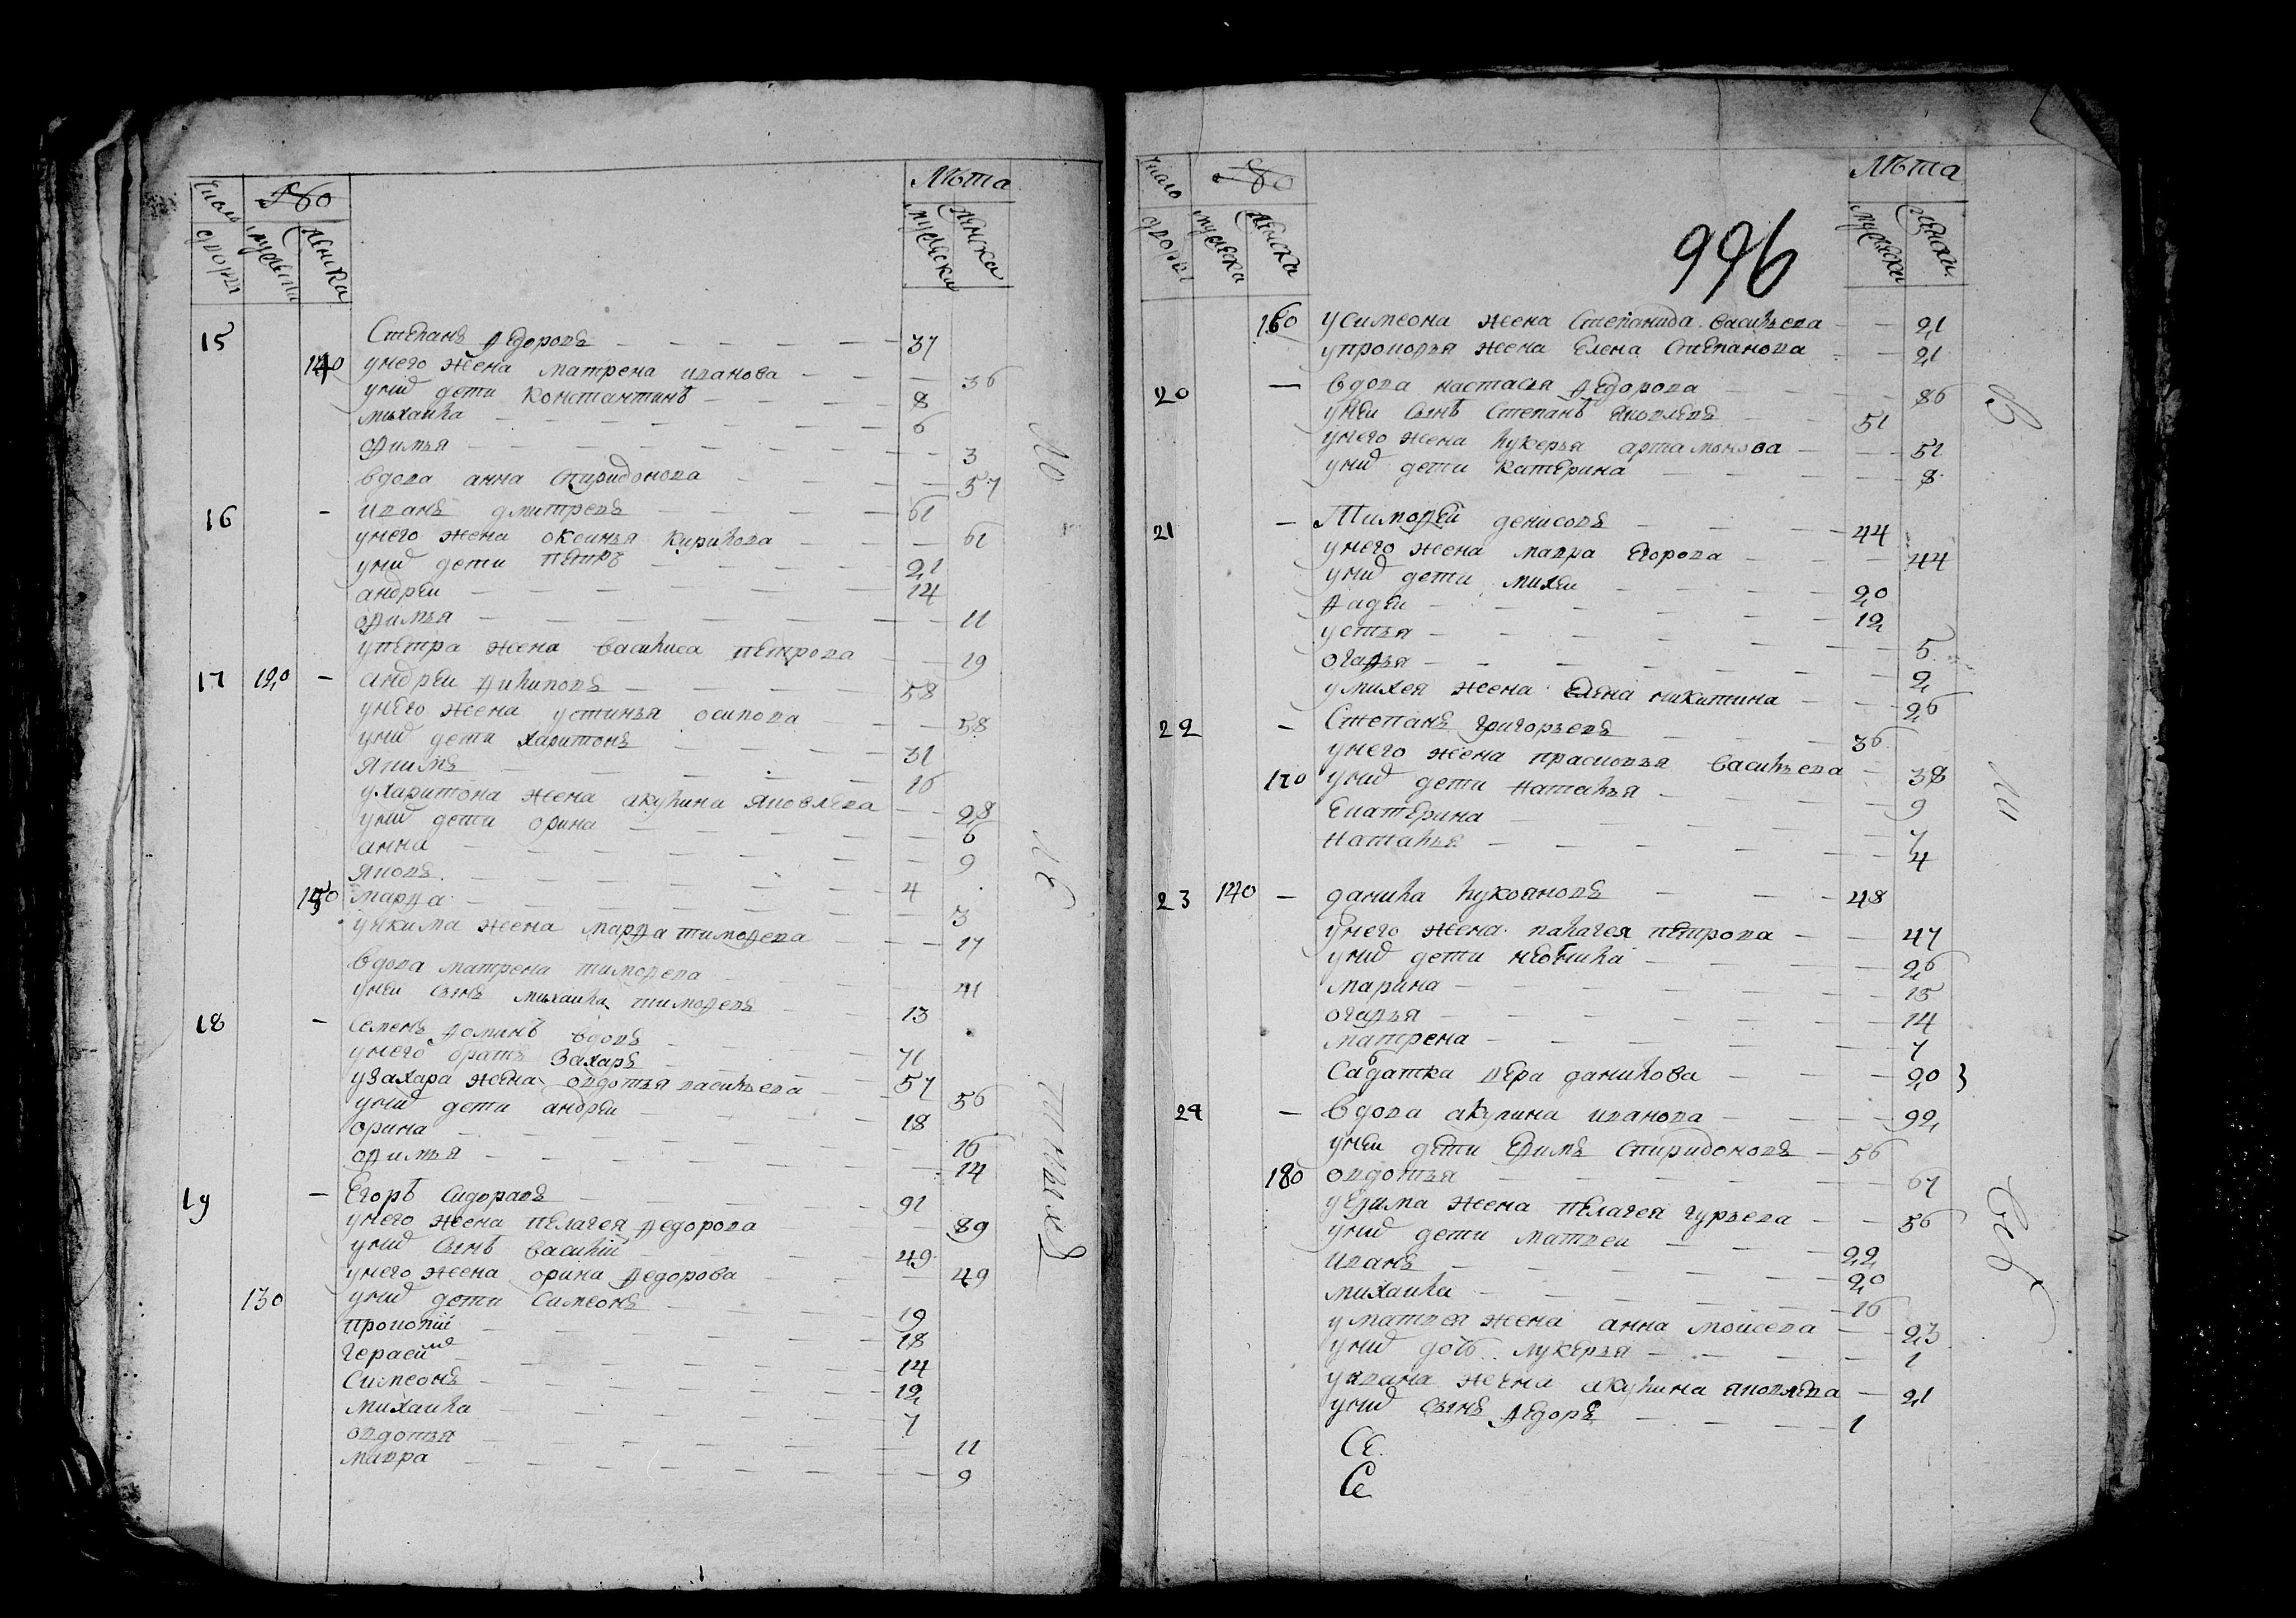 Число дворы мужеска женска Лѣта мужеска женска
15 Степанъ Ѳедоровъ 37
140 унего жена матрена иванова 36
унихъ дети константинъ 8
михаила 6
офимья 3
вдова анна спиридонова 57
16 - иванъ дмитревъ 61
унего жена оксинья кирилова 61
унихъ дети петръ 21
андреи 14
офимья 11
упетра жена василиса петрова 19
17 120 - андреи Филиповъ 58
унего жена устинья осипова 58
унихъ дети харитонъ 31
якимъ 16
ухаритона жена акулина яковлева 28
унихъ дети орина 6
анна 9
яковъ 4
150 марфа 3
уякима жена марфа тимофева 17
вдова матрена тимофева 41
унеи сынъ михаила тимофевъ 13
18 - семенъ Фоминъ вдовъ 71
унего братъ Захаръ 57
узахара жена овдотья васильева 56
унихъ дети андреи 18
орина 16
офимья 14
19 - Егоръ сидоровъ 91
унего жена пелагея Ѳедорова 89
унихъ сынъ василій 49
унего жена орина Ѳедорова 49
130 унихъ дети симеонъ 19
прокопій 18
герасимъ 14
симеонъ 12
михаила 7
овдотья 11
мавра 9
Число дворы мужеска женска Лѣта мужеска женска
996
160 усимеона жена степанида васильева 21
упрокофья жена елена степанова 21
20 - вдова настасья Ѳедорова 86
унеи сынъ степанъ яковлевъ 51
унего жена лукерья артамонова 51
унихъ дети катерина 8
21 - Тимофеи денисовъ 44
унего жена мавра егорова 44
унихъ дети михеи 20
Фадеи 12
устья 5
огафья 2
умихея жена елена никитина 26
22 - Степанъ григорьевъ 36
унего жена прасковья васильева 38
170 унихъ дети наталья 9
екатерина 7
наталья 4
23 140 - данила лукояновъ 48
унего жена палагея петрова 47
унихъ дети неонила 26
марина 15
огафья 14
матрена 7
Салдатка вера данилова 20
24 - вдова акулина иванова 92
унеи дети ефимъ спиридоновъ 56
180 овдотья 67
уефима жена пелагея гурьева 56
унихъ дети матвеи 22
иванъ 20
михаила 16
уматвея жена анна моисева 23
унихъ дочь лукерья 1
уивана жена акулина яковлева 21
унихъ сынъ Ѳедоръ 1
Се
Се